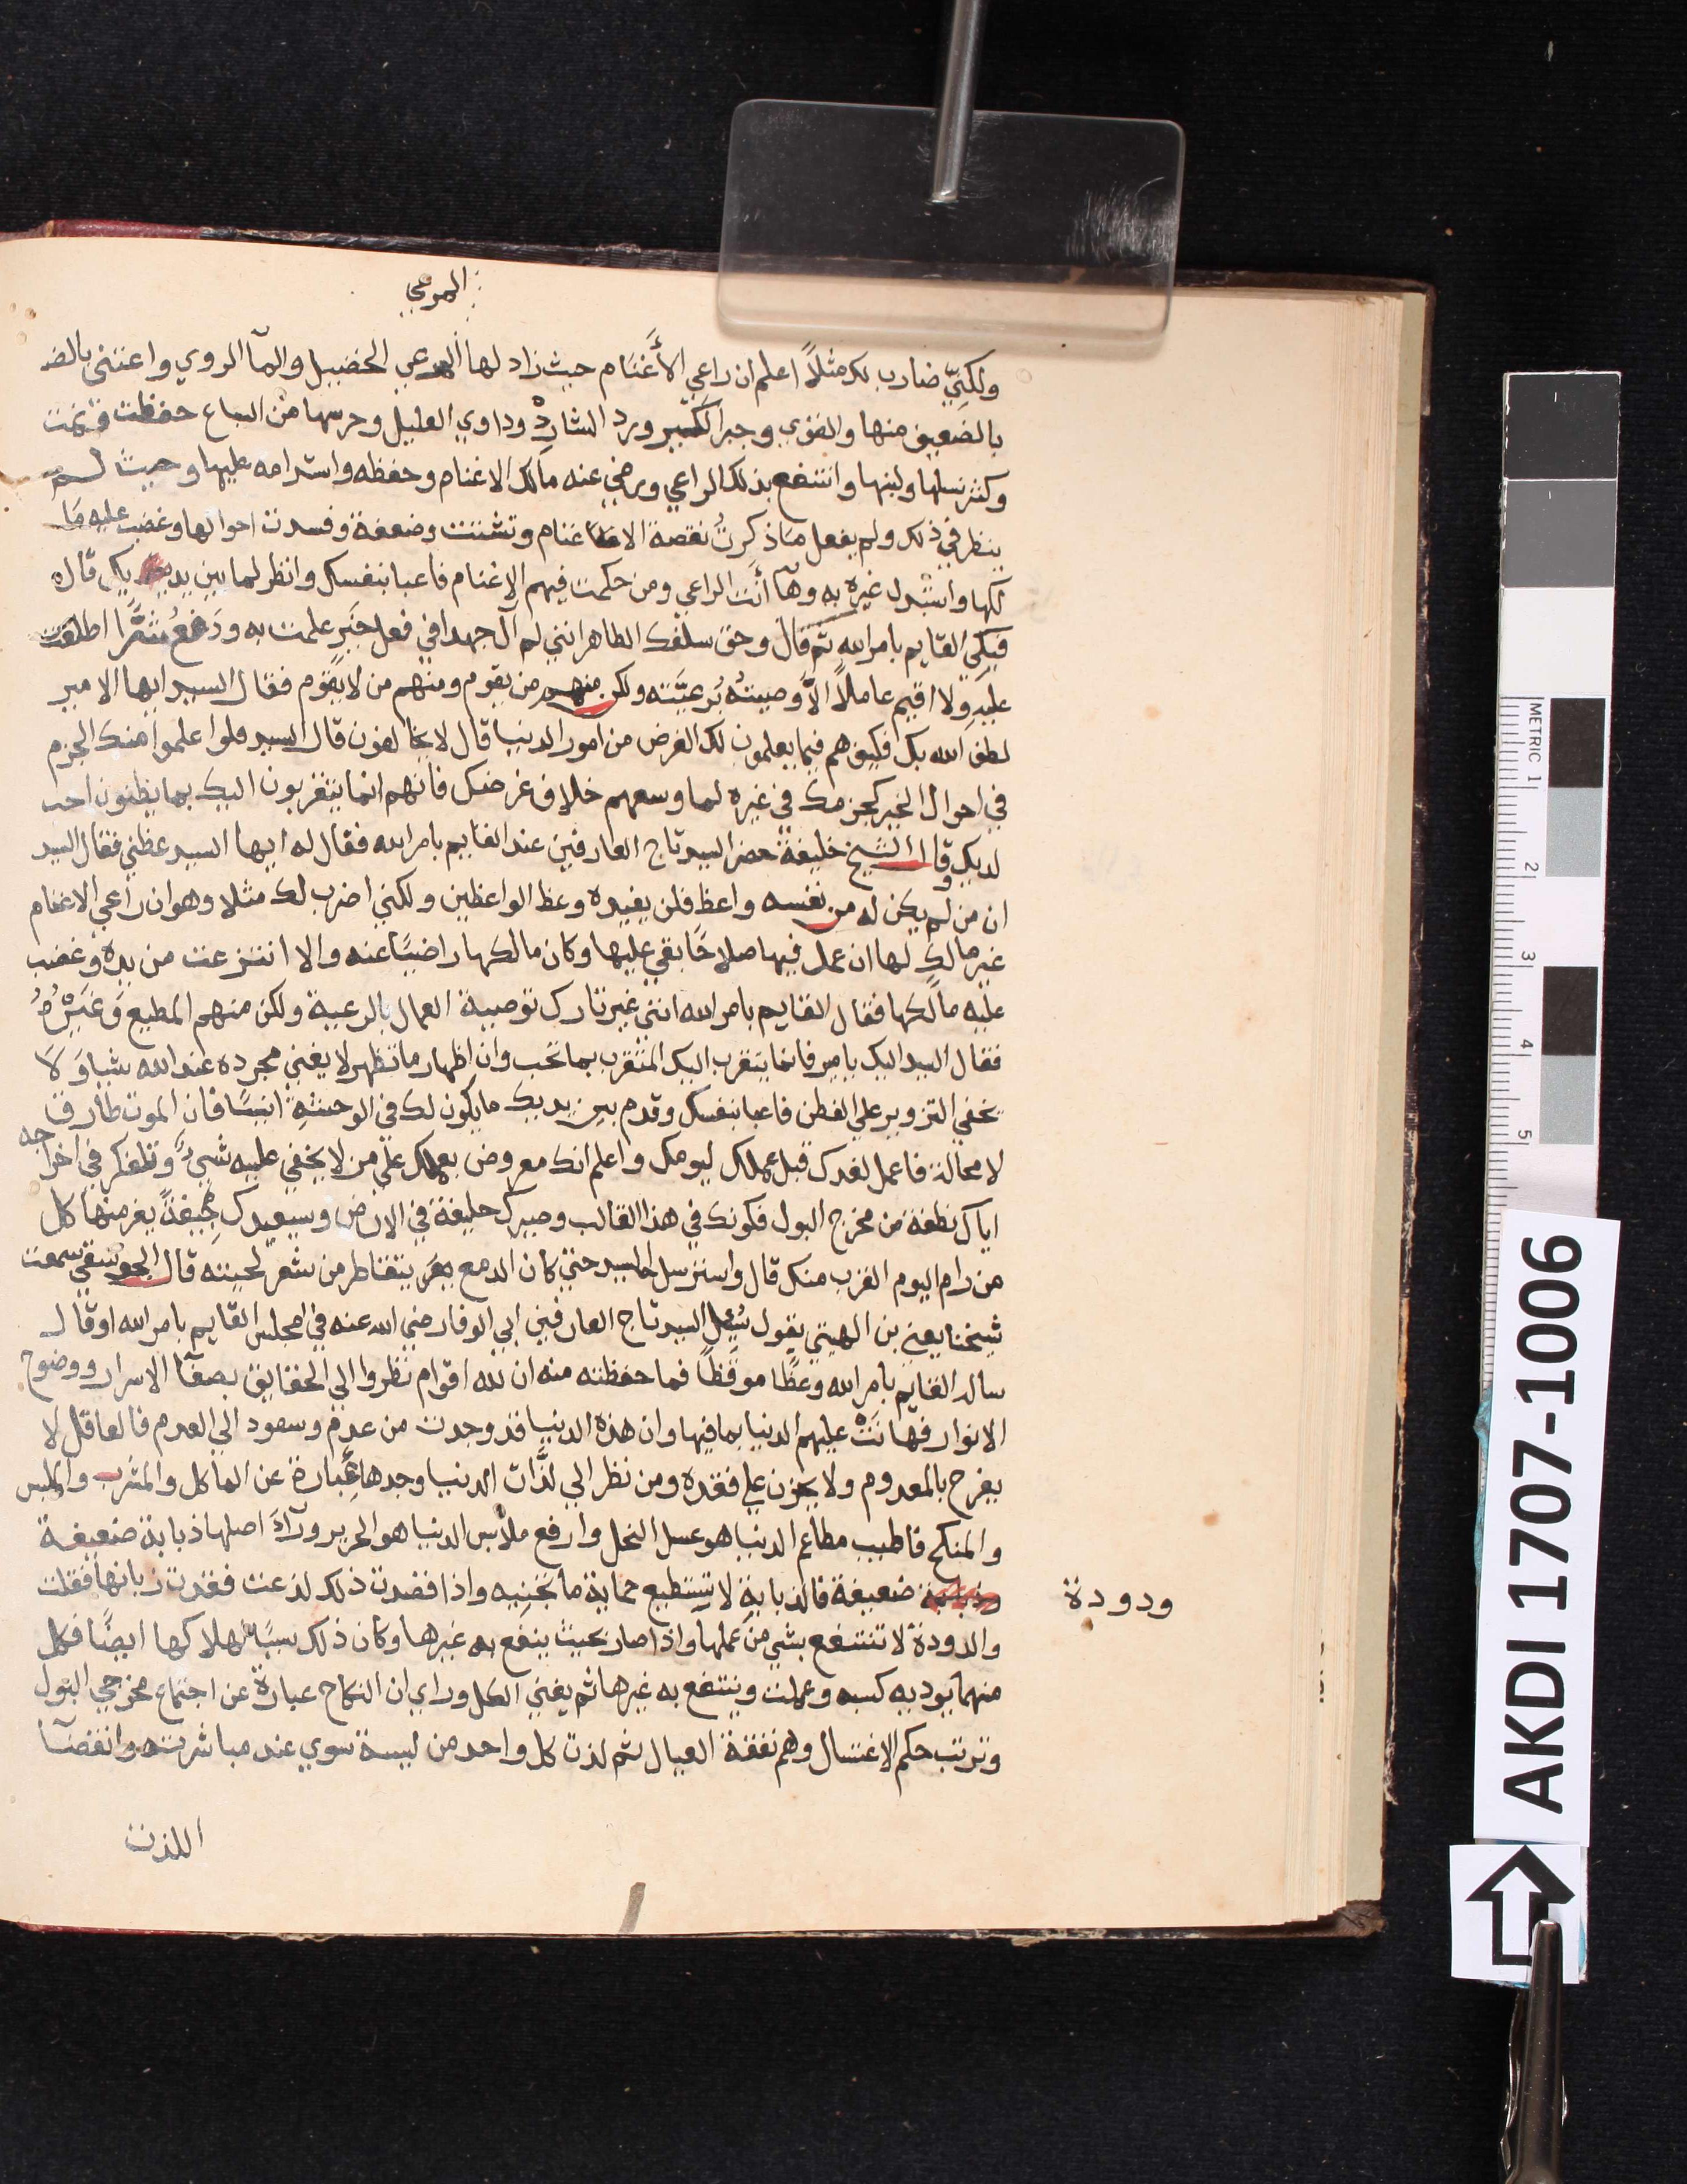 المرعي
ولكنّي ضارب لك مثلاً اعلم ان راعي الأَغنَام حيث زاد لها المرعي الخضيبل والمآ الروي واعتنى بالضـ
بالضعيف منها والقوي وجبر الكَسير ورد الشاردْ وداوي العليل وحرسها من السباع حفظت فنمت
وكثر نسلها ولبنها وانتفع بذلك الراعي ورضي عنه مالك الاغنام وحفظه واستدامه عليها وحيث لم
ينظر في ذلك ولم يفعل ماذكرتُ نقصة الاغنام وتشتت وضعفة وفسدت احوالها وغضب عليه مَا
لكها واستبدل غيره به وهآ أَنَت الراعي ومن حكمت فيهم الاغنام فاعبا بنفسك وانظر لما بين يديك قال
فبكي القايم بامر الله ثم قال وحق سلفك الطاهر انني لم آل جهدا في فعل خَيرٍ علمت به ودَفعُ شرًّا اطلعت
عليَهِ ولا اقيم عاملاً الاَّ وصيتُه بُرعيَّته ولكن منهم من يقوم ومنهم من لايقوم فقال السيد ايها الامير
لطف الله بك فكيف هم فيما يعلمون لك الغرض من امور الدنيا قال لا يخالفون قال السيد فلوا علموا منك الجزم
في احوال الخير كجزمك في غيره لما وسعهم خلاف غرضك فانهم انما يتقربون اليك بما يظنون احب
لديك وقال الشيخ خليفة حضر السيد تاج العارفين عند القايم بامر الله فقال له ايها السيد عظني فقال السيد
ان من لم يكن له من نفسه واعظ فلن يفيده وعظ الواعظين ولكني اضرب لك مثلا وهو ان راعي الاغنام
غير مالكٍ لها ان عمل فيها صلاحًا بقي عليها وكان مالكها راضيًا عنه والا انتزعت من يده وغضب
عليه مالكها فقال القايم بامر الله انني غير تارك توصية العمال بالرعية ولكن منهم المطيع وَغَيْرُهُ
فقال السيد اليك يامير فانما يتقرب اليك المتقرب بما تحب وان اظهار ماتظهر لا يغني مجرده عند الله شيا وَلَا
يخفي التزوير علي الفطن فاعبا بنفسك وقدم بين يديك مايكون لك في الوحشةِ انيسًا فان الموت طارق
لا محالة فاعمل لغدك قبل عملك ليومك واعلم انك معروض بعملك علي من لا يخفي عليه شيءٌ وتفكر في اخراجه
اياك نطفة من مخرج البول فكونك في هذا القالب وصيرك خليفة في الارض وسيعيدك جيفةً يفر منها كل
من رام اليوم القرب منك قال واسترسل السيد حتي كان الدمع يتقاطر من شعر لحيته قال الجوسقي سمعت
شيخنا يعني بن الهيتي يقول سُيٍل السيد تاج العارفين ابي الوفا رضي الله عنه في مجلس القايم بامر الله اوقال
ساله القايم بامر الله وعظًا موقظاً فما حفظته منه ان لله اقوام نظروا الي الحقايق بصفآ الاسرار ووضوح
الانوار فهانَتْ عليهم الدنيا بمافيها وان هذه الدنيا قد وجدت من عدم وستعود الي العدم فالعاقل لا
يفرح بالمعدوم ولا يحزن علي فقده ومن نظر الي لذَّات الدنيا وجدها عِبارة عن الماكل والمشرب والملبس
والمنكح فاطيب مطاعم الدنيا هو عسل النحل وارفع ملابس الدنيا هو الحرير ورآءَ اصلها ذبابة ضعيفة
ودودة
ضعيفة فالذبابة لا تستطيع حماية ماتجنيه واذا قصدت ذلك لذعت ففقدت زبانها فقتلت
والدودة لا تنتفع بشي من عملها واذا صار بحيث ينفع به غيرها وكان ذلك سببًا لهلاكها ايضًا فكل
منهما يوديه كسبه وعملت وينتفع به غيرها ثم يفني الكل وراي ان النكاح عبارة عن اجتماع مخرجي البول
وترتب حكم الاغتسال وهم نفقة العيال ثم لذت كل واحد من ليسة سوي عند مباشرته وانقضآ
اللذت
AKDI 1707-1006
METRIC 1 2 3 4 5